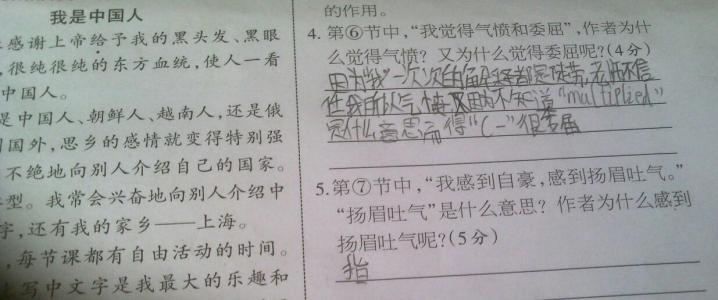 我是中国人
感谢上帝给予我的黑头发、黑眼
,很纯很纯的东方血统,使人一看
中国人。
是中国人、朝鲜人、越南人,还是俄
国外,思乡的感情就变得特别强
不绝地向别人介绍自己的国家。
型。我常会兴奋地向别人介绍中
字,还有我的家乡——上海。
,每节课都有自由活动的时间。
写中文字是我最大的乐趣和
的作用。
4. 第⑥节中,“我觉得气愤和委屈”,作者为什
么觉得气愤?又为什么觉得委屈呢?(4分)
因为“我”一次次的 都 老师不信
任我所以气愤 又因为不知道“multiplied”
是什么意思而得“C-”很委屈
5. 第⑦节中,“我感到自豪,感到扬眉吐气。”
“扬眉吐气”是什么意思?作者为什么感到
扬眉吐气呢?(5分)
指